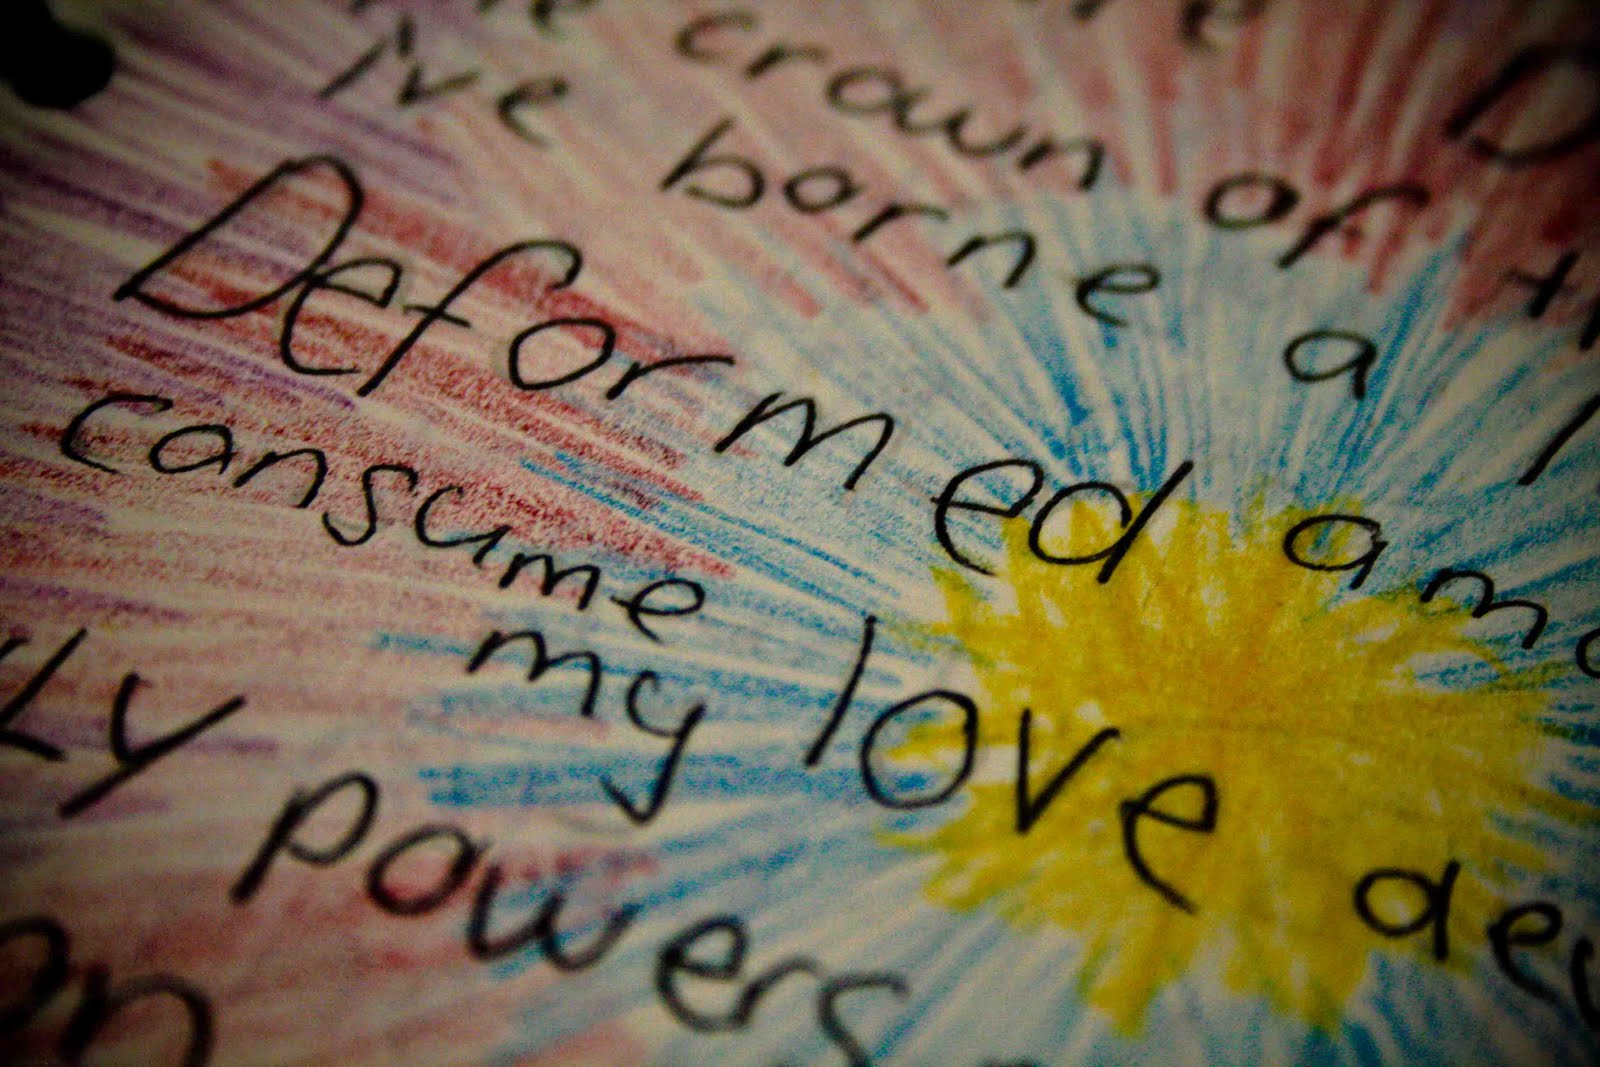 crown of
i've borne a
Deformed and
consume my love dev
ly powers
on